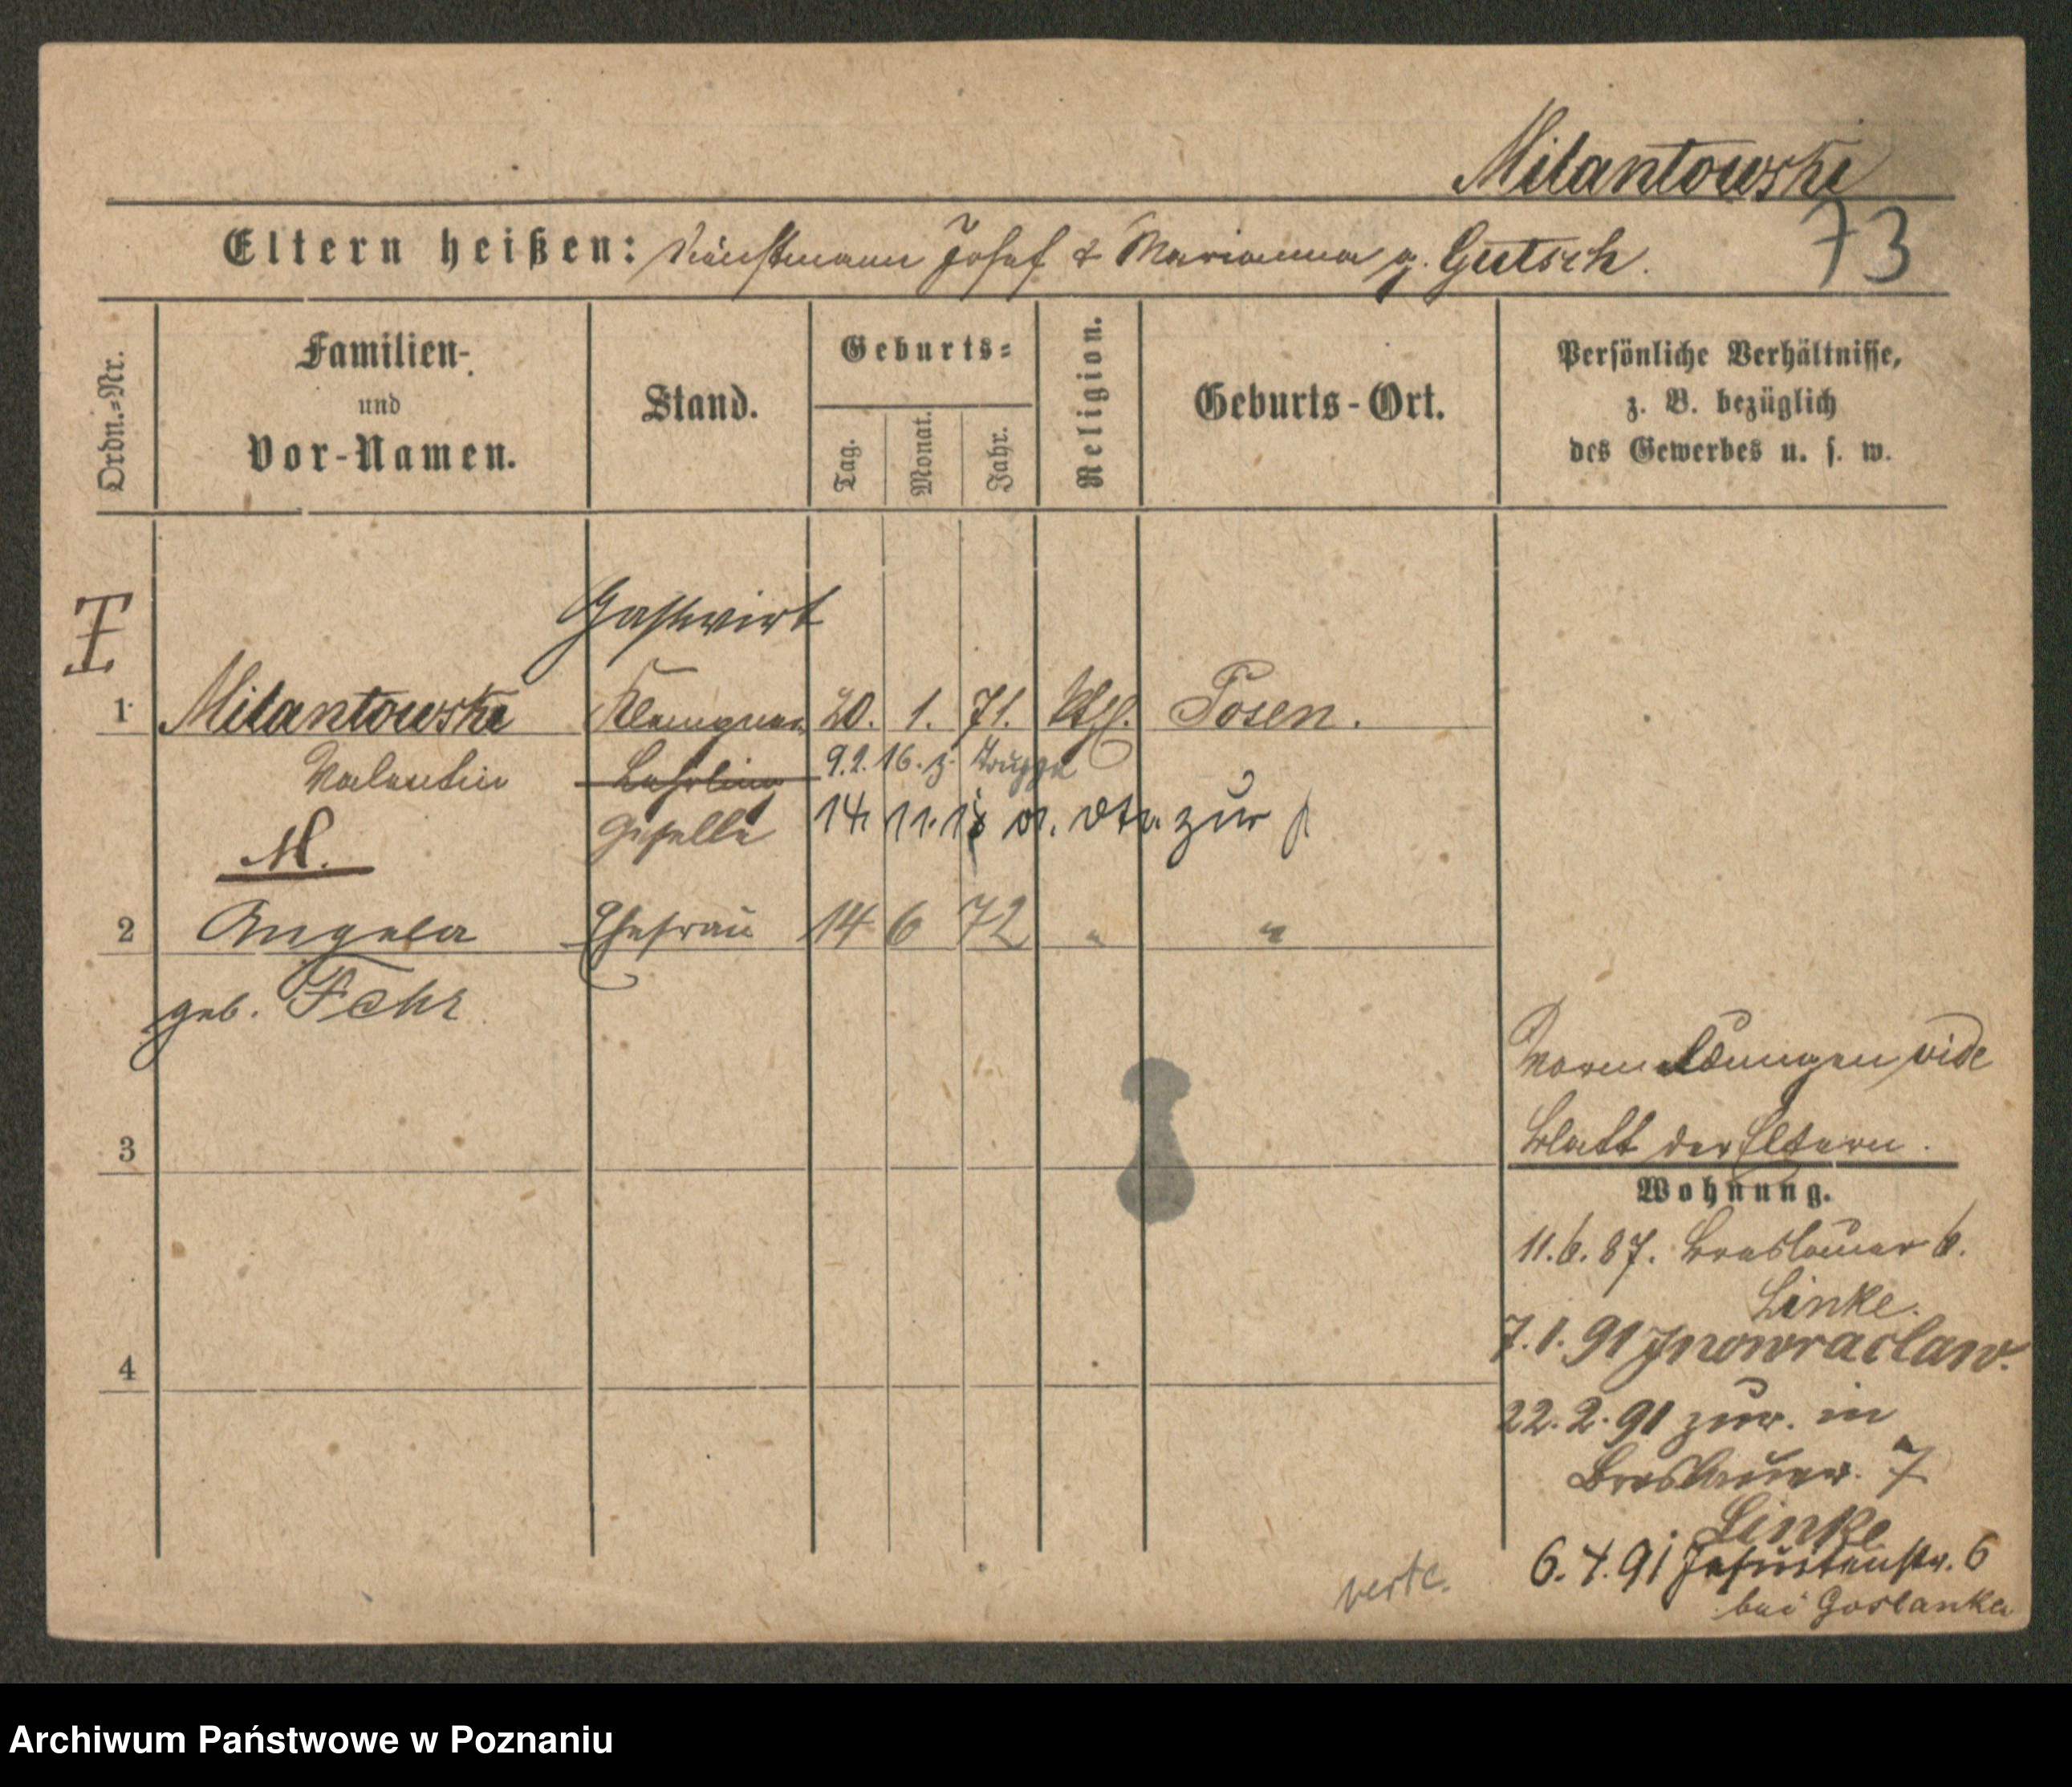 Milantowski
Eltern heißen: Josef & Marianna g. Gutsch.
73
Ordn.-Nr.
Familien-
und
Vor-Namen.
Stand.
Geburts-
Tag.
Monat.
Jahr.
Religion.
Geburts-Ort.
Persönliche Verhältnisse,
z. B. bezüglich
des Gewerbes u. s. w.
Gastwirt
1 Milantowski Klempner 20. 1. 71. kth. Posen.
Valentin Lehrling 9.2.16. z. Truppe
Geselle 14. 11. 18 v. dto. zur
M.
2 Angela Ehefrau 14 6 72 " "
geb. Fehr
3
4
Vormeldungen vide
Blatt der Eltern.
Wohnung.
11.6.87. Breslauer 6.
Linke.
7.1.91 Inowraclaw.
22.2.91 zur. in
Breslauer. 7
Linke
6.4.91 Jesuitenstr. 6
bei Goslanka
verte.
Archiwum Państwowe w Poznaniu